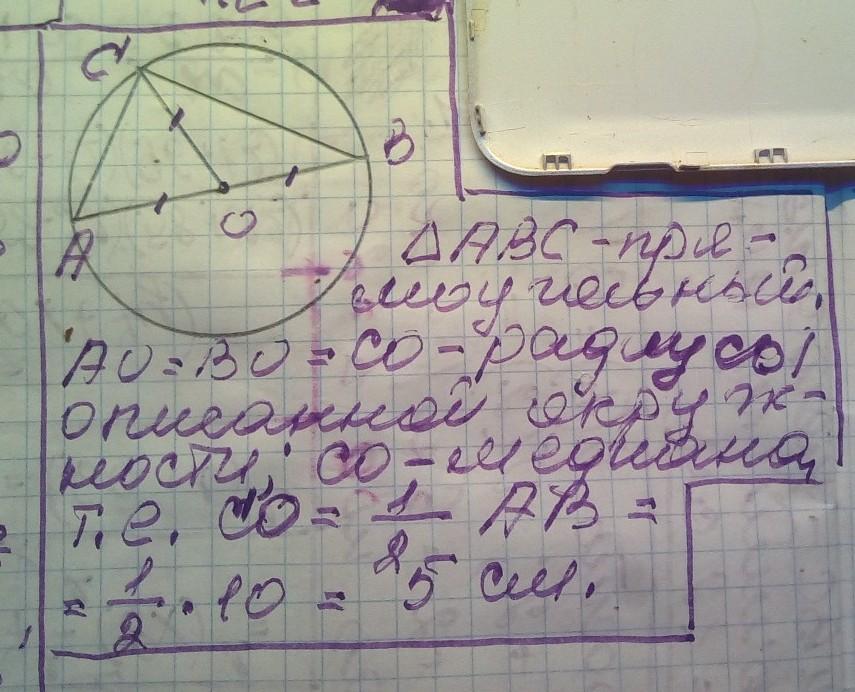 C
B
O
A
ΔABC - пря-
моугильный.
AO = BO = CO - радиусы
описанной окруж-
ности; CO - медиана,
т.е. CO = 1/2 AB =
= 1/2 · 10 = 5 см.